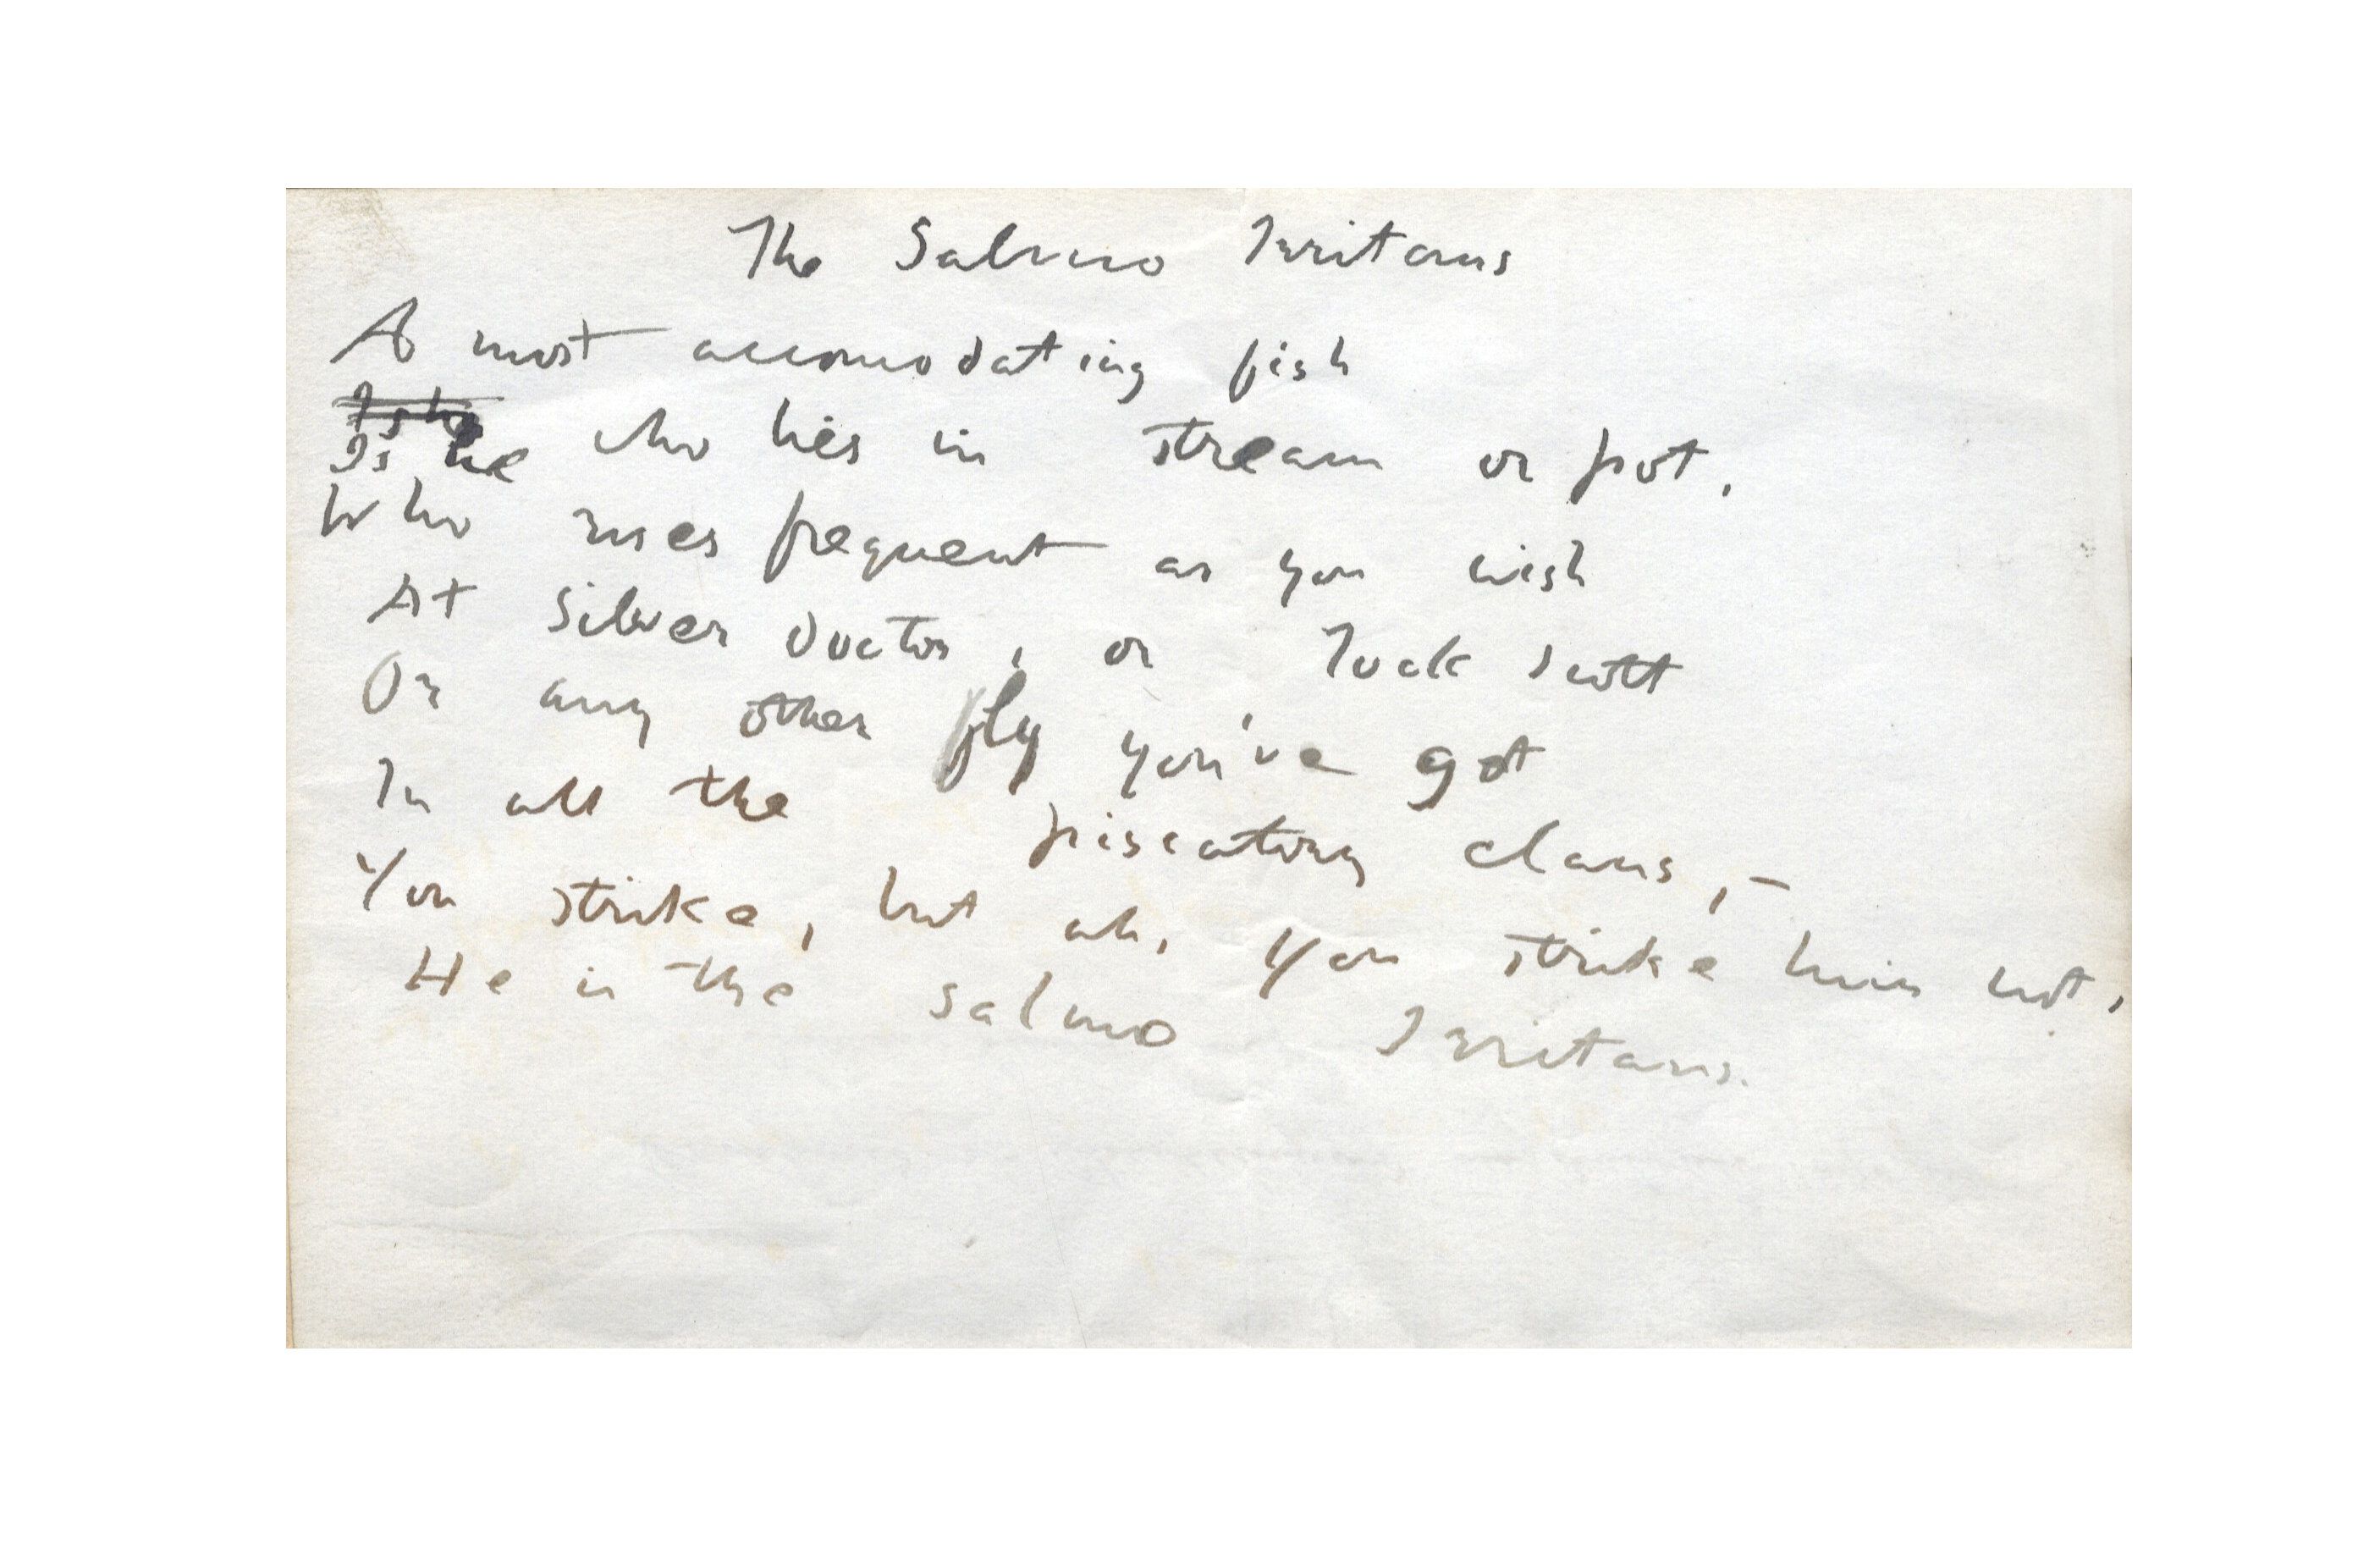 The Salmo Irritans
A most accomodating fish
Is he
Is he who lies in stream or pot,
Who rises frequent as you wish
At Silver Doctor, or Jock Scott
Or any other fly you've got
In all the piscatory clans,-
You strike, but ah, you strike him not,
He is the salmo Irritans.